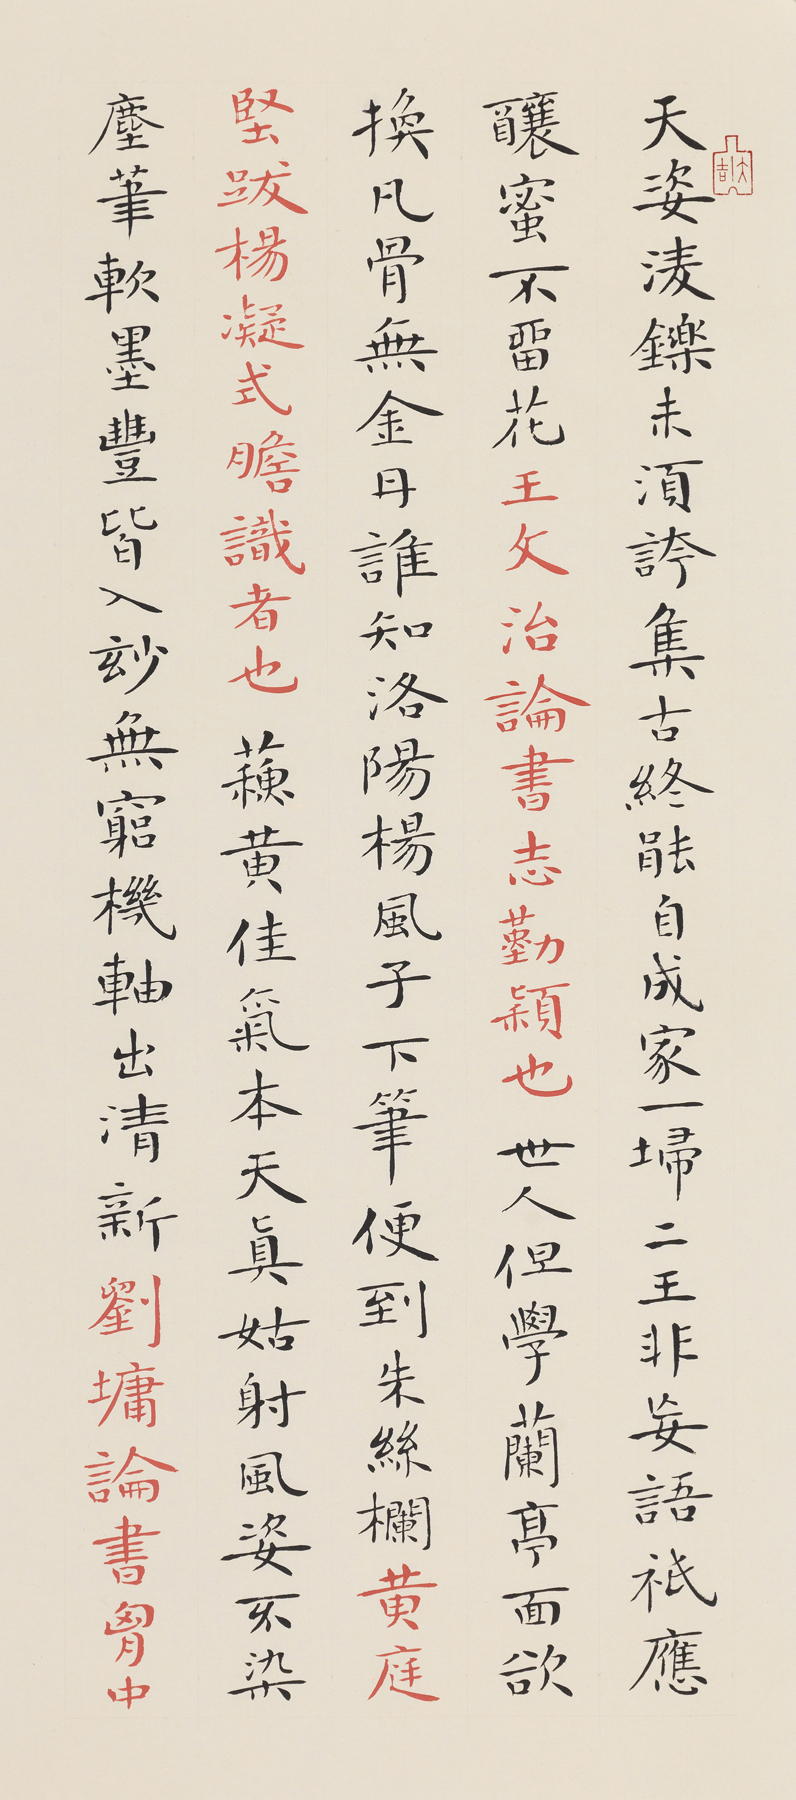 天姿淩鑠未須誇集古終能自成家一埽二王非妄語祇應
釀蜜不畱花王文治論書志勤穎也世人但學蘭亭面欲
換凡骨無金丹誰知洛陽楊風子下筆便到朱絲欄黄庭
堅跋楊凝式瞻識者也蘓黄佳氣本天真姑射風姿不染
塵筆軟墨豐皆入玅無窮機軸出清新劉墉論書胷中
大吉